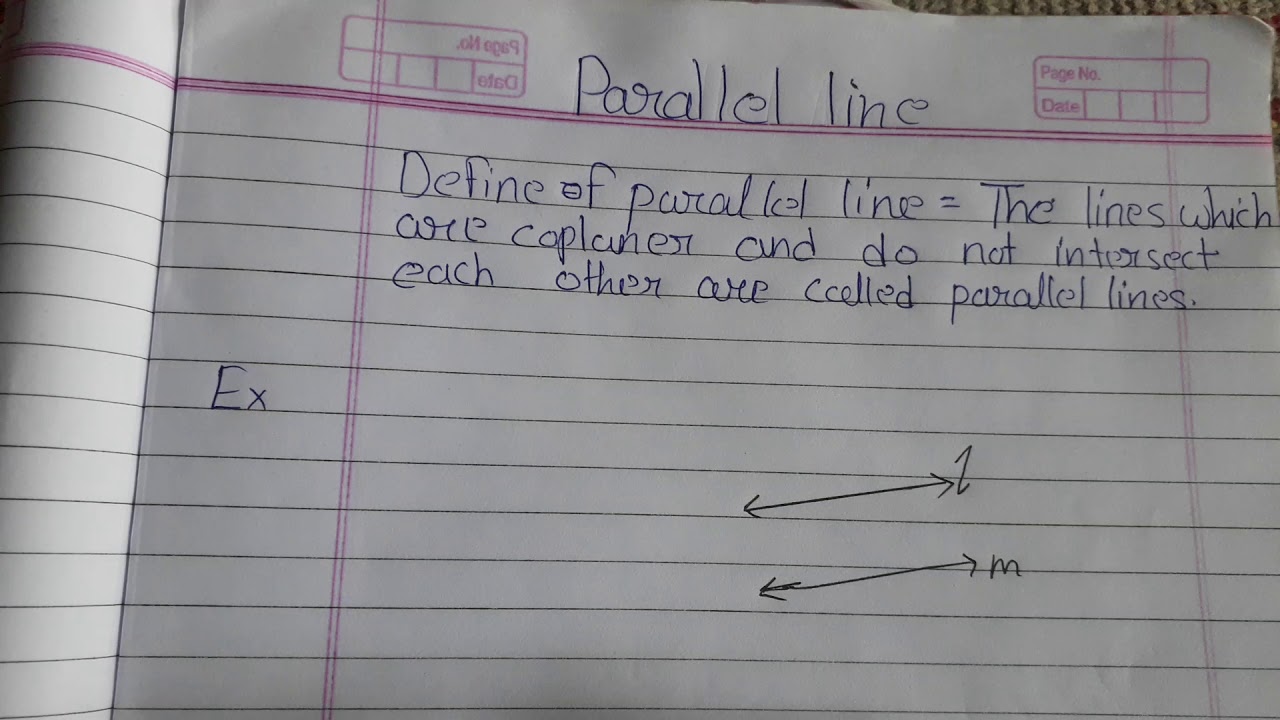 Page No.
Date
Parallel line
Page No.
Date
Define of parallel line = The lines which
are coplaner and do not intersect
each other are ccelled parallel lines.
Ex
l
m